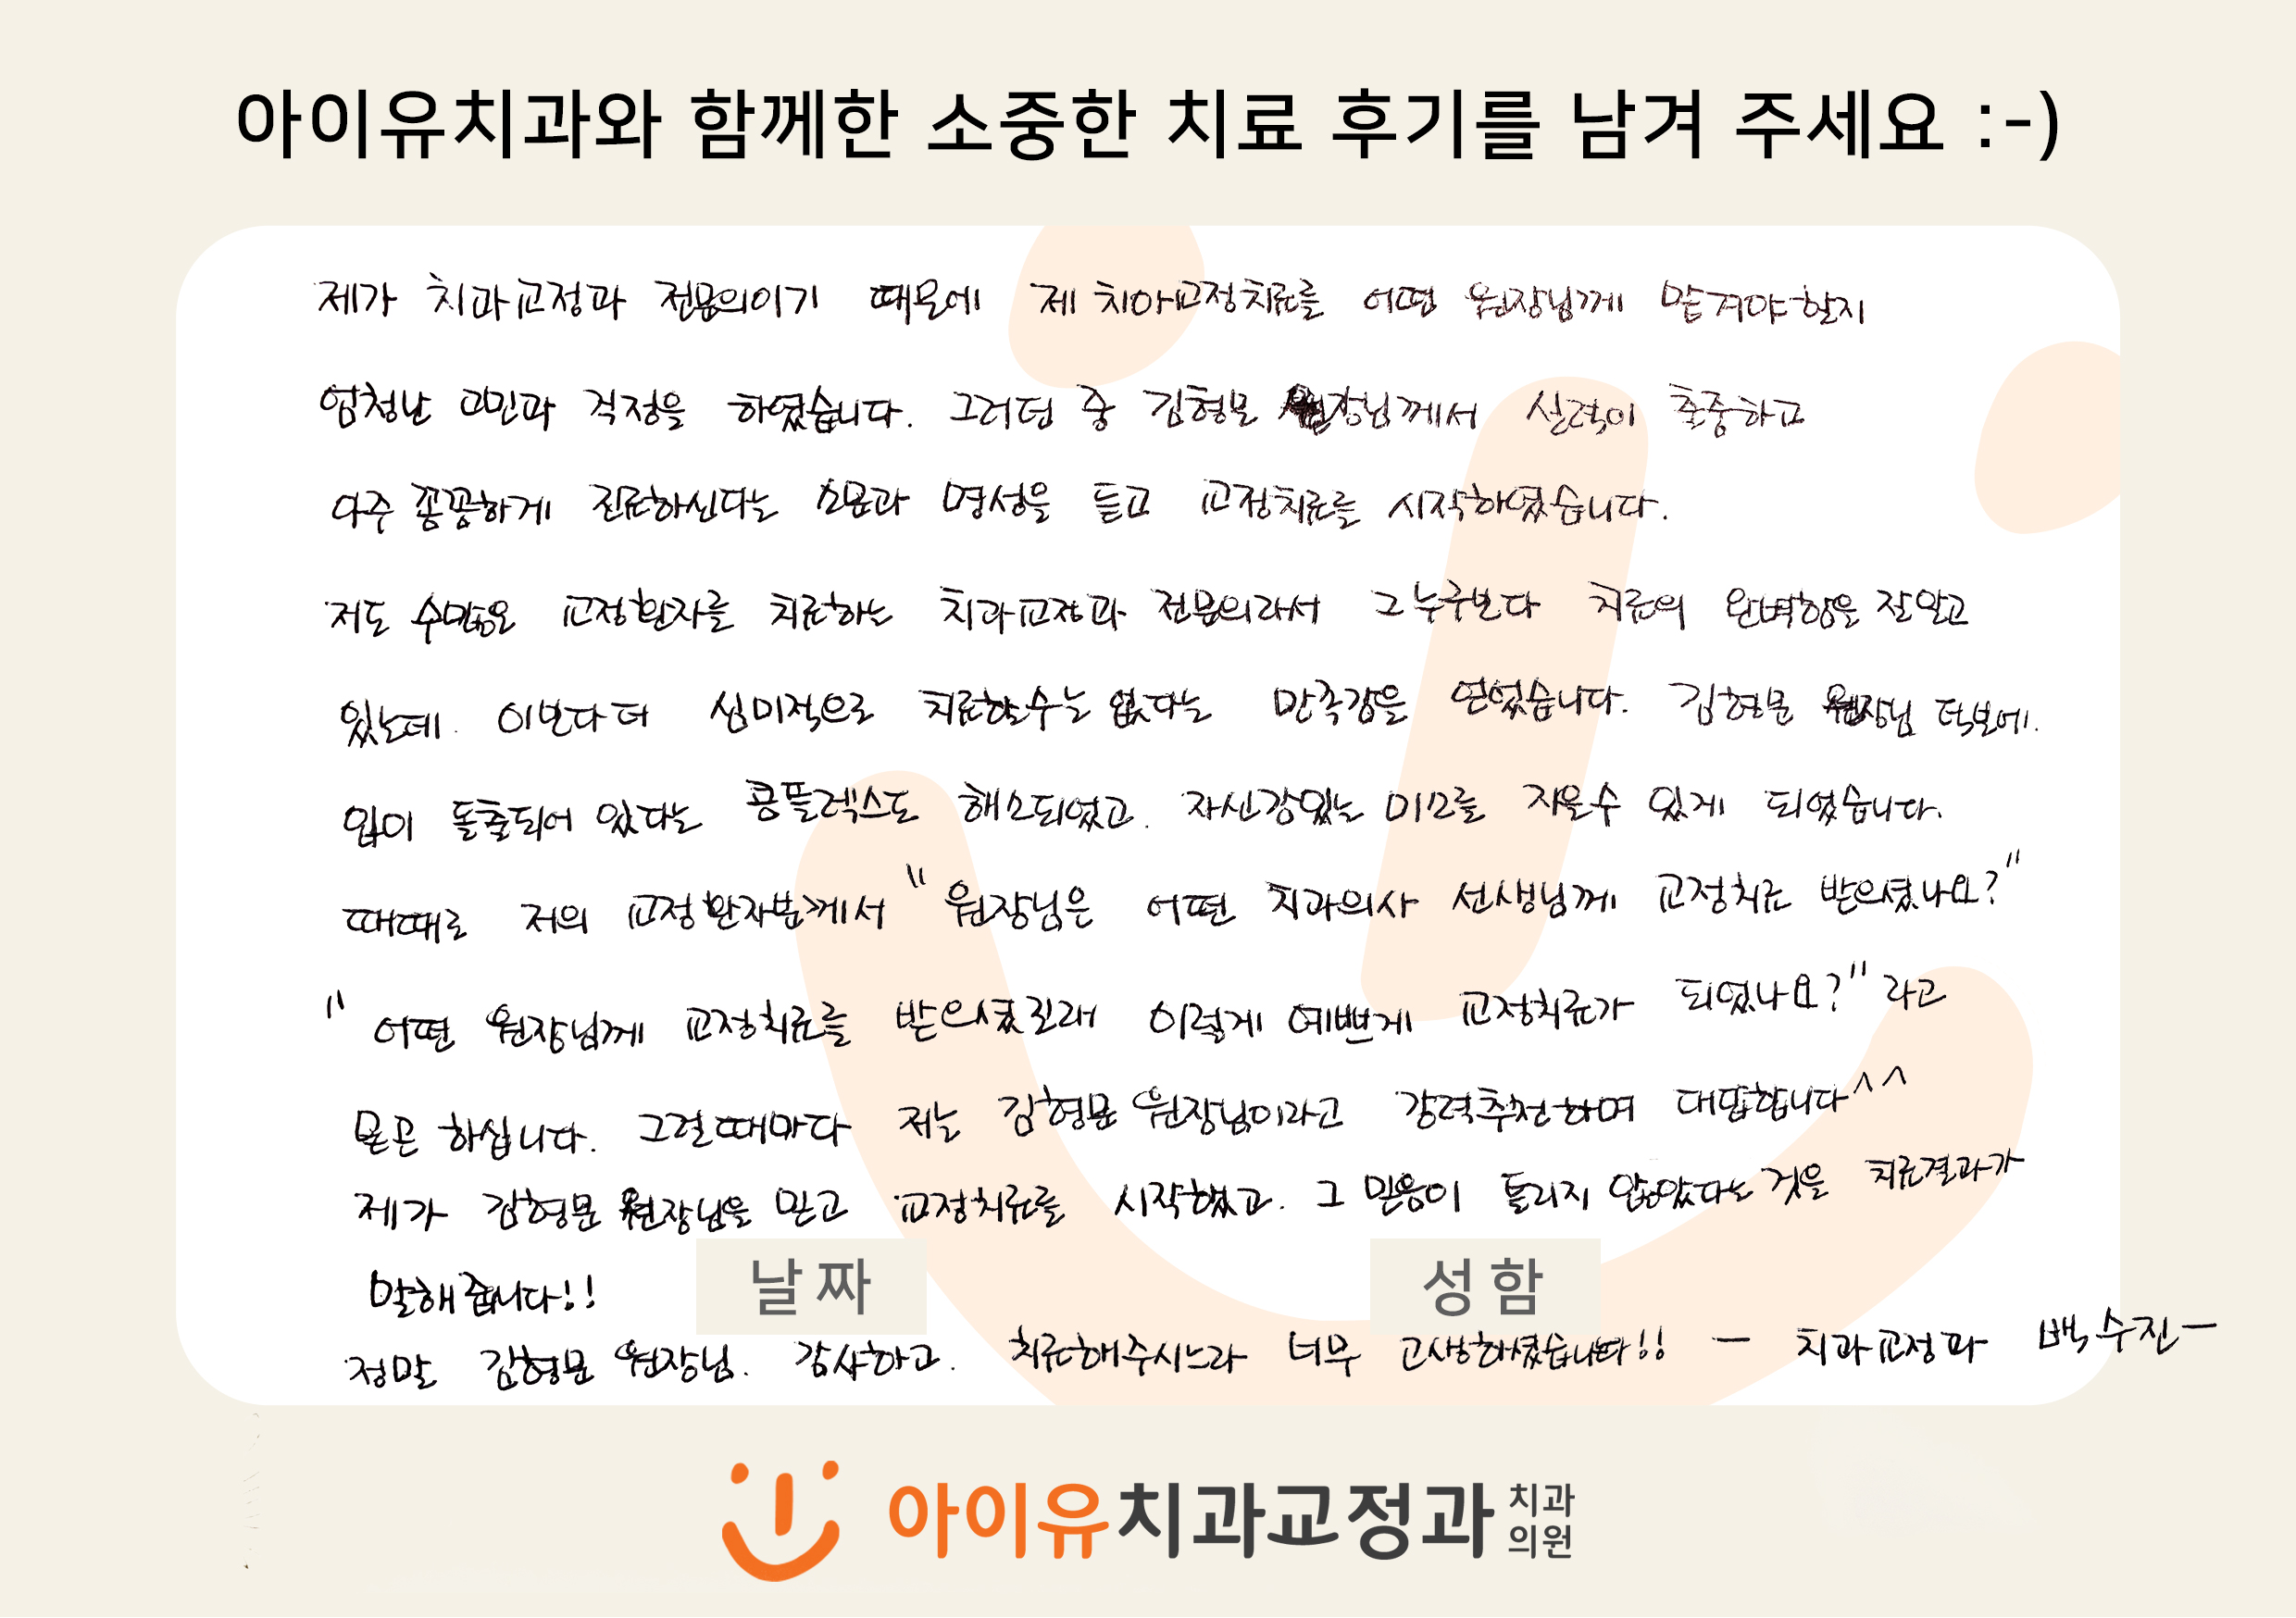 아이유치과와 함께한 소중한 치료 후기를 남겨 주세요 :-)
제가 치과교정과 전문의이기 때문에 제 치아교정치료를 어떤 원장님께 맡겨야할지
엄청난 고민과 걱정을 하였습니다. 그러던 중 김형문 원장님께서 실력이 출중하고
아주 꼼꼼하게 진료하신다는 소문과 명성을 듣고 교정치료를 시작하였습니다.
저도 수많은 교정환자를 치료하는 치과교정과 전문의라서 그 누구보다 치료의 완벽함을 잘알고
있는데. 이보다 더 심미적으로 치료할수는 없다는 만족감을 얻었습니다. 김형문 원장님 덕분에.
입이 돌출되어 있다는 콤플렉스도 해소되었고. 자신감있는 미소를 지을수 있게 되었습니다.
때때로 저의 교정환자분께서 "원장님은 어떤 치과의사 선생님께 교정치료 받으셨나요?"
"어떤 원장님께 교정치료를 받으셨길래 이렇게 예쁘게 교정치료가 되었나요?" 라고
문의 하십니다. 그럴때마다 저는 김형문 원장님이라고 강력추천하며 대답합니다^^
제가 김형문 원장님을 믿고 교정치료를 시작했고. 그 믿음이 틀리지 않았다는 것을 치료결과가
말해줍니다!!
날짜 성함
정말 김형문 원장님. 감사하고. 치료해주시느라 너무 고생하셨습니다!! - 치과교정과 백수진-
아이유치과교정과 치과의원